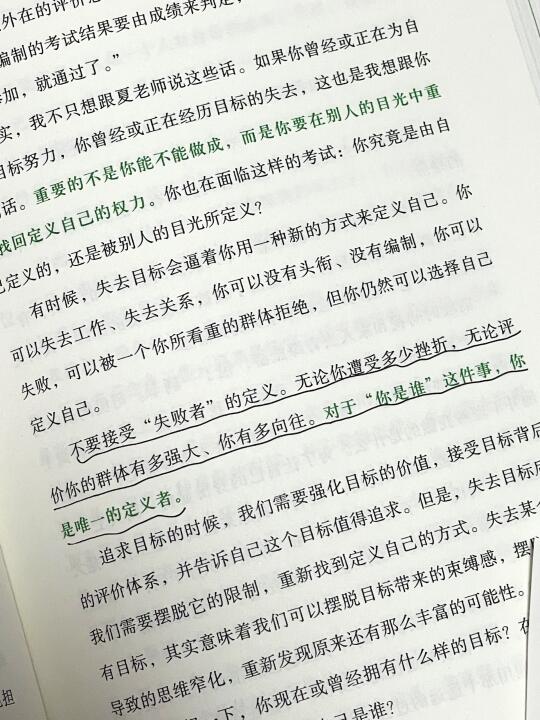 外在的评价
编制的考试结果要由成绩来判定，
参加，就通过了。”
实，我不只想跟夏老师说这些话。如果你曾经或正在为自
目标努力，你曾经或正在经历目标的失去，这也是我想跟你
话。重要的不是你能不能做成，而是你要在别人的目光中重
找回定义自己的权力。你也在面临这样的考试：你究竟是由自
己定义的，还是被别人的目光所定义？
有时候，失去目标会逼着你用一种新的方式来定义自己。你
可以失去工作、失去关系，你可以没有头衔、没有编制，你可以
失败，可以被一个你所看重的群体拒绝，但你仍然可以选择自己
定义自己。
不要接受“失败者”的定义。无论你遭受多少挫折，无论评
价你的群体有多强大、你有多向往。对于“你是谁”这件事，你
是唯一的定义者。
追求目标的时候，我们需要强化目标的价值，接受目标背后
的评价体系，并告诉自己这个目标值得追求。但是，失去目标后
我们需要摆脱它的限制，重新找到定义自己的方式。失去某个
有目标，其实意味着我们可以摆脱目标带来的束缚感，摆
导致的思维窄化，重新发现原来还有那么丰富的可能性。
一下，你现在或曾经拥有什么样的目标？在
自己是谁？
担